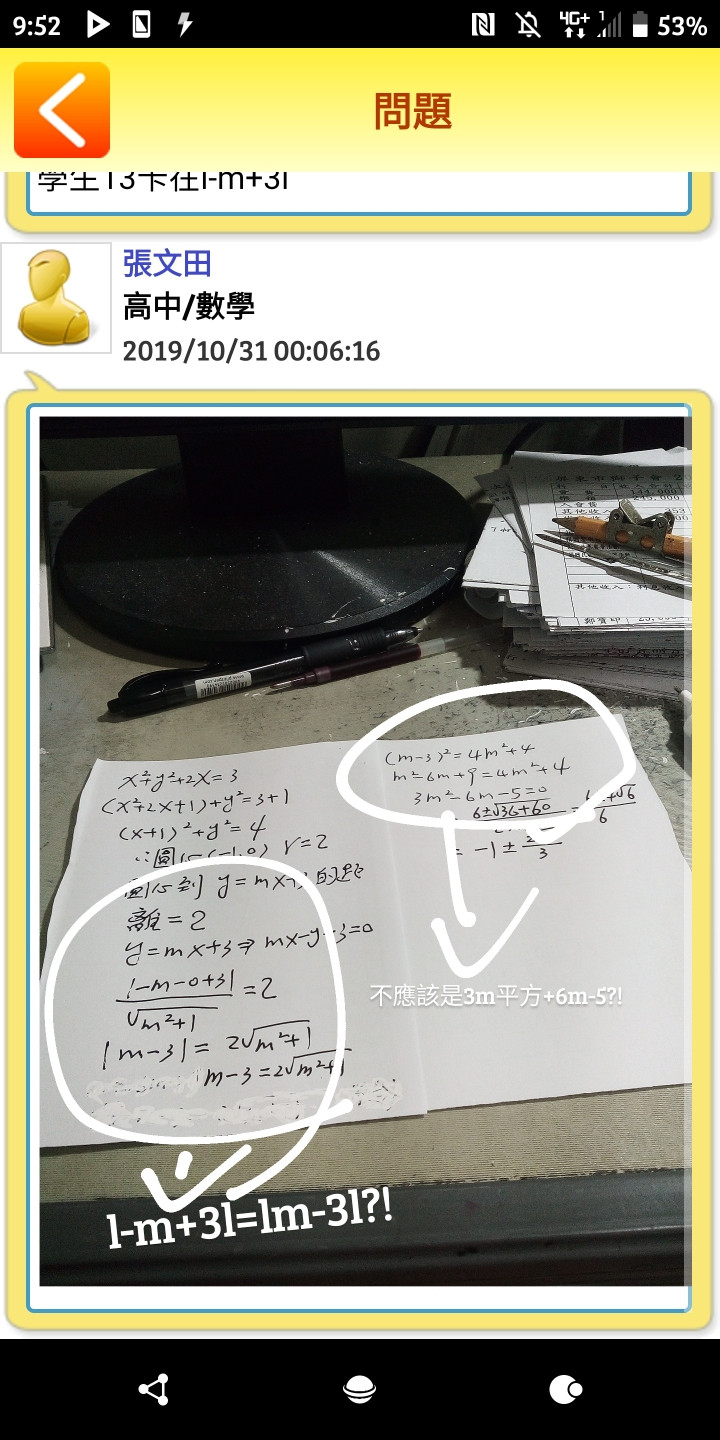 9:52
4G+
53%
問題
學生13卡在l-m+3l
張文田
高中/數學
2019/10/31 00:06:16
x²+y²+2x=3
(x²+2x+1)+y²=3+1
(x+1)²+y²=4
r=2
y=mx+3
離=2
y=mx+3⇒mx-y+3=0
|-m-0+3|
√m²+1
=2
|m-3|=2√m²+1
m-3=2√m²+1
(m-3)²=4m²+4
m²-6m+9=4m²+4
3m²-6m-5=0
6±√36+60
6
=-1±
3
不應該是3m平方+6m-5?!
l-m+3l=lm-3l?!